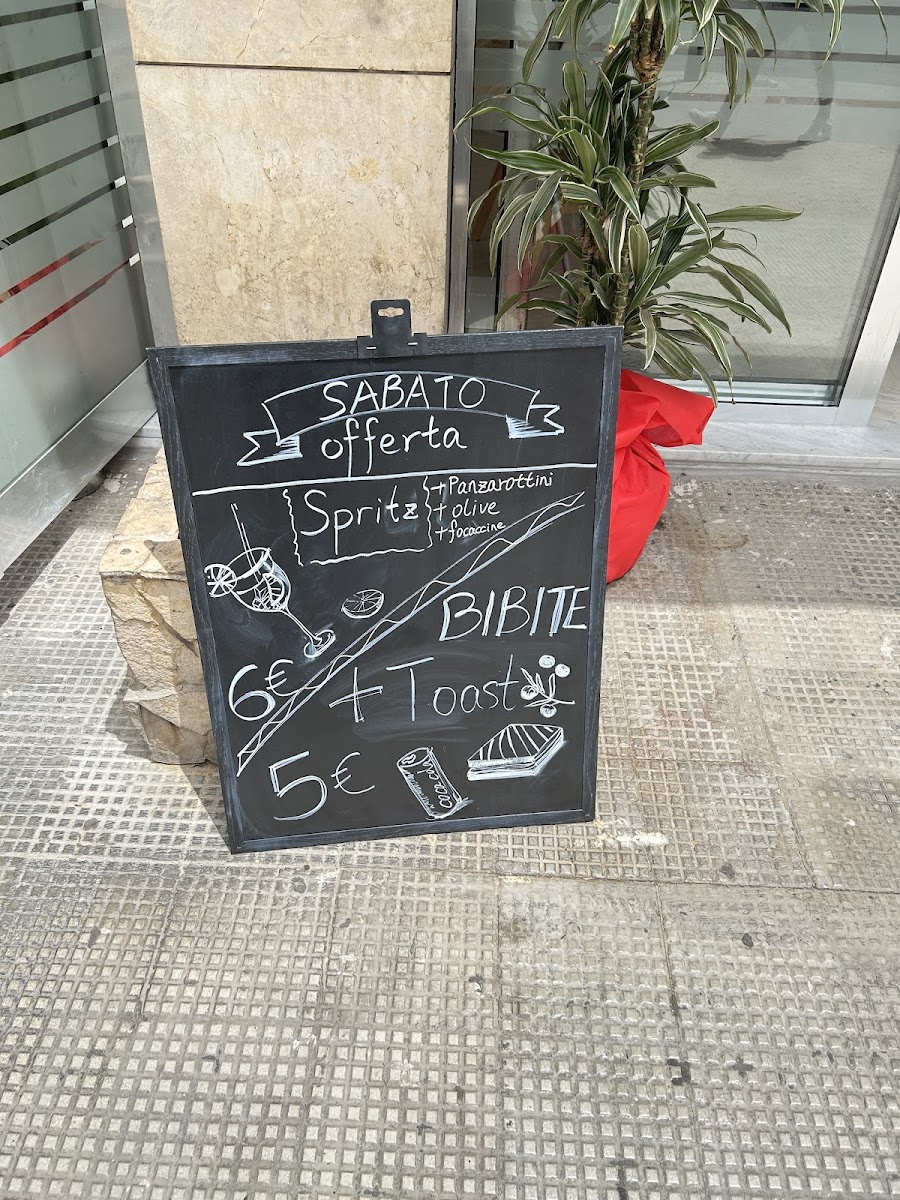 SABATO
offerta
Spritz
+ Panzarottini
+ olive
+ focaccine
6€
BIBITE
+ Toast
5€
coca cola